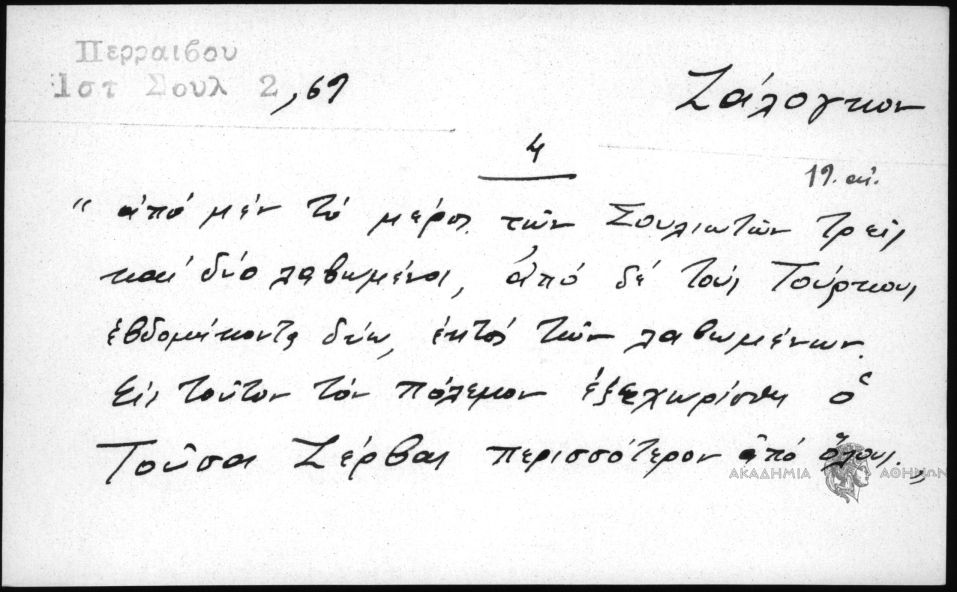 Περραιβου
Ιστ Σουλ 2, 69
Ζάλογκον
4
19. αἰ.
"ἀπό μέν τό μέρος τῶν Σουλιωτῶν τρεῖς
καί δύο λαβωμένοι, ἀπό δέ τούς Τούρκους
ἑβδομήκοντα δύω, ἐκτός τῶν λαβωμένων.
Εἰς τοῦτον τόν πόλεμον ἐξεχωρίσθη ὁ
Τοῦσα Ζέρβας περισσότερον ἀπό ὅλους."
ΑΚΑΔΗΜΙΑ ΑΘΗΝΩΝ